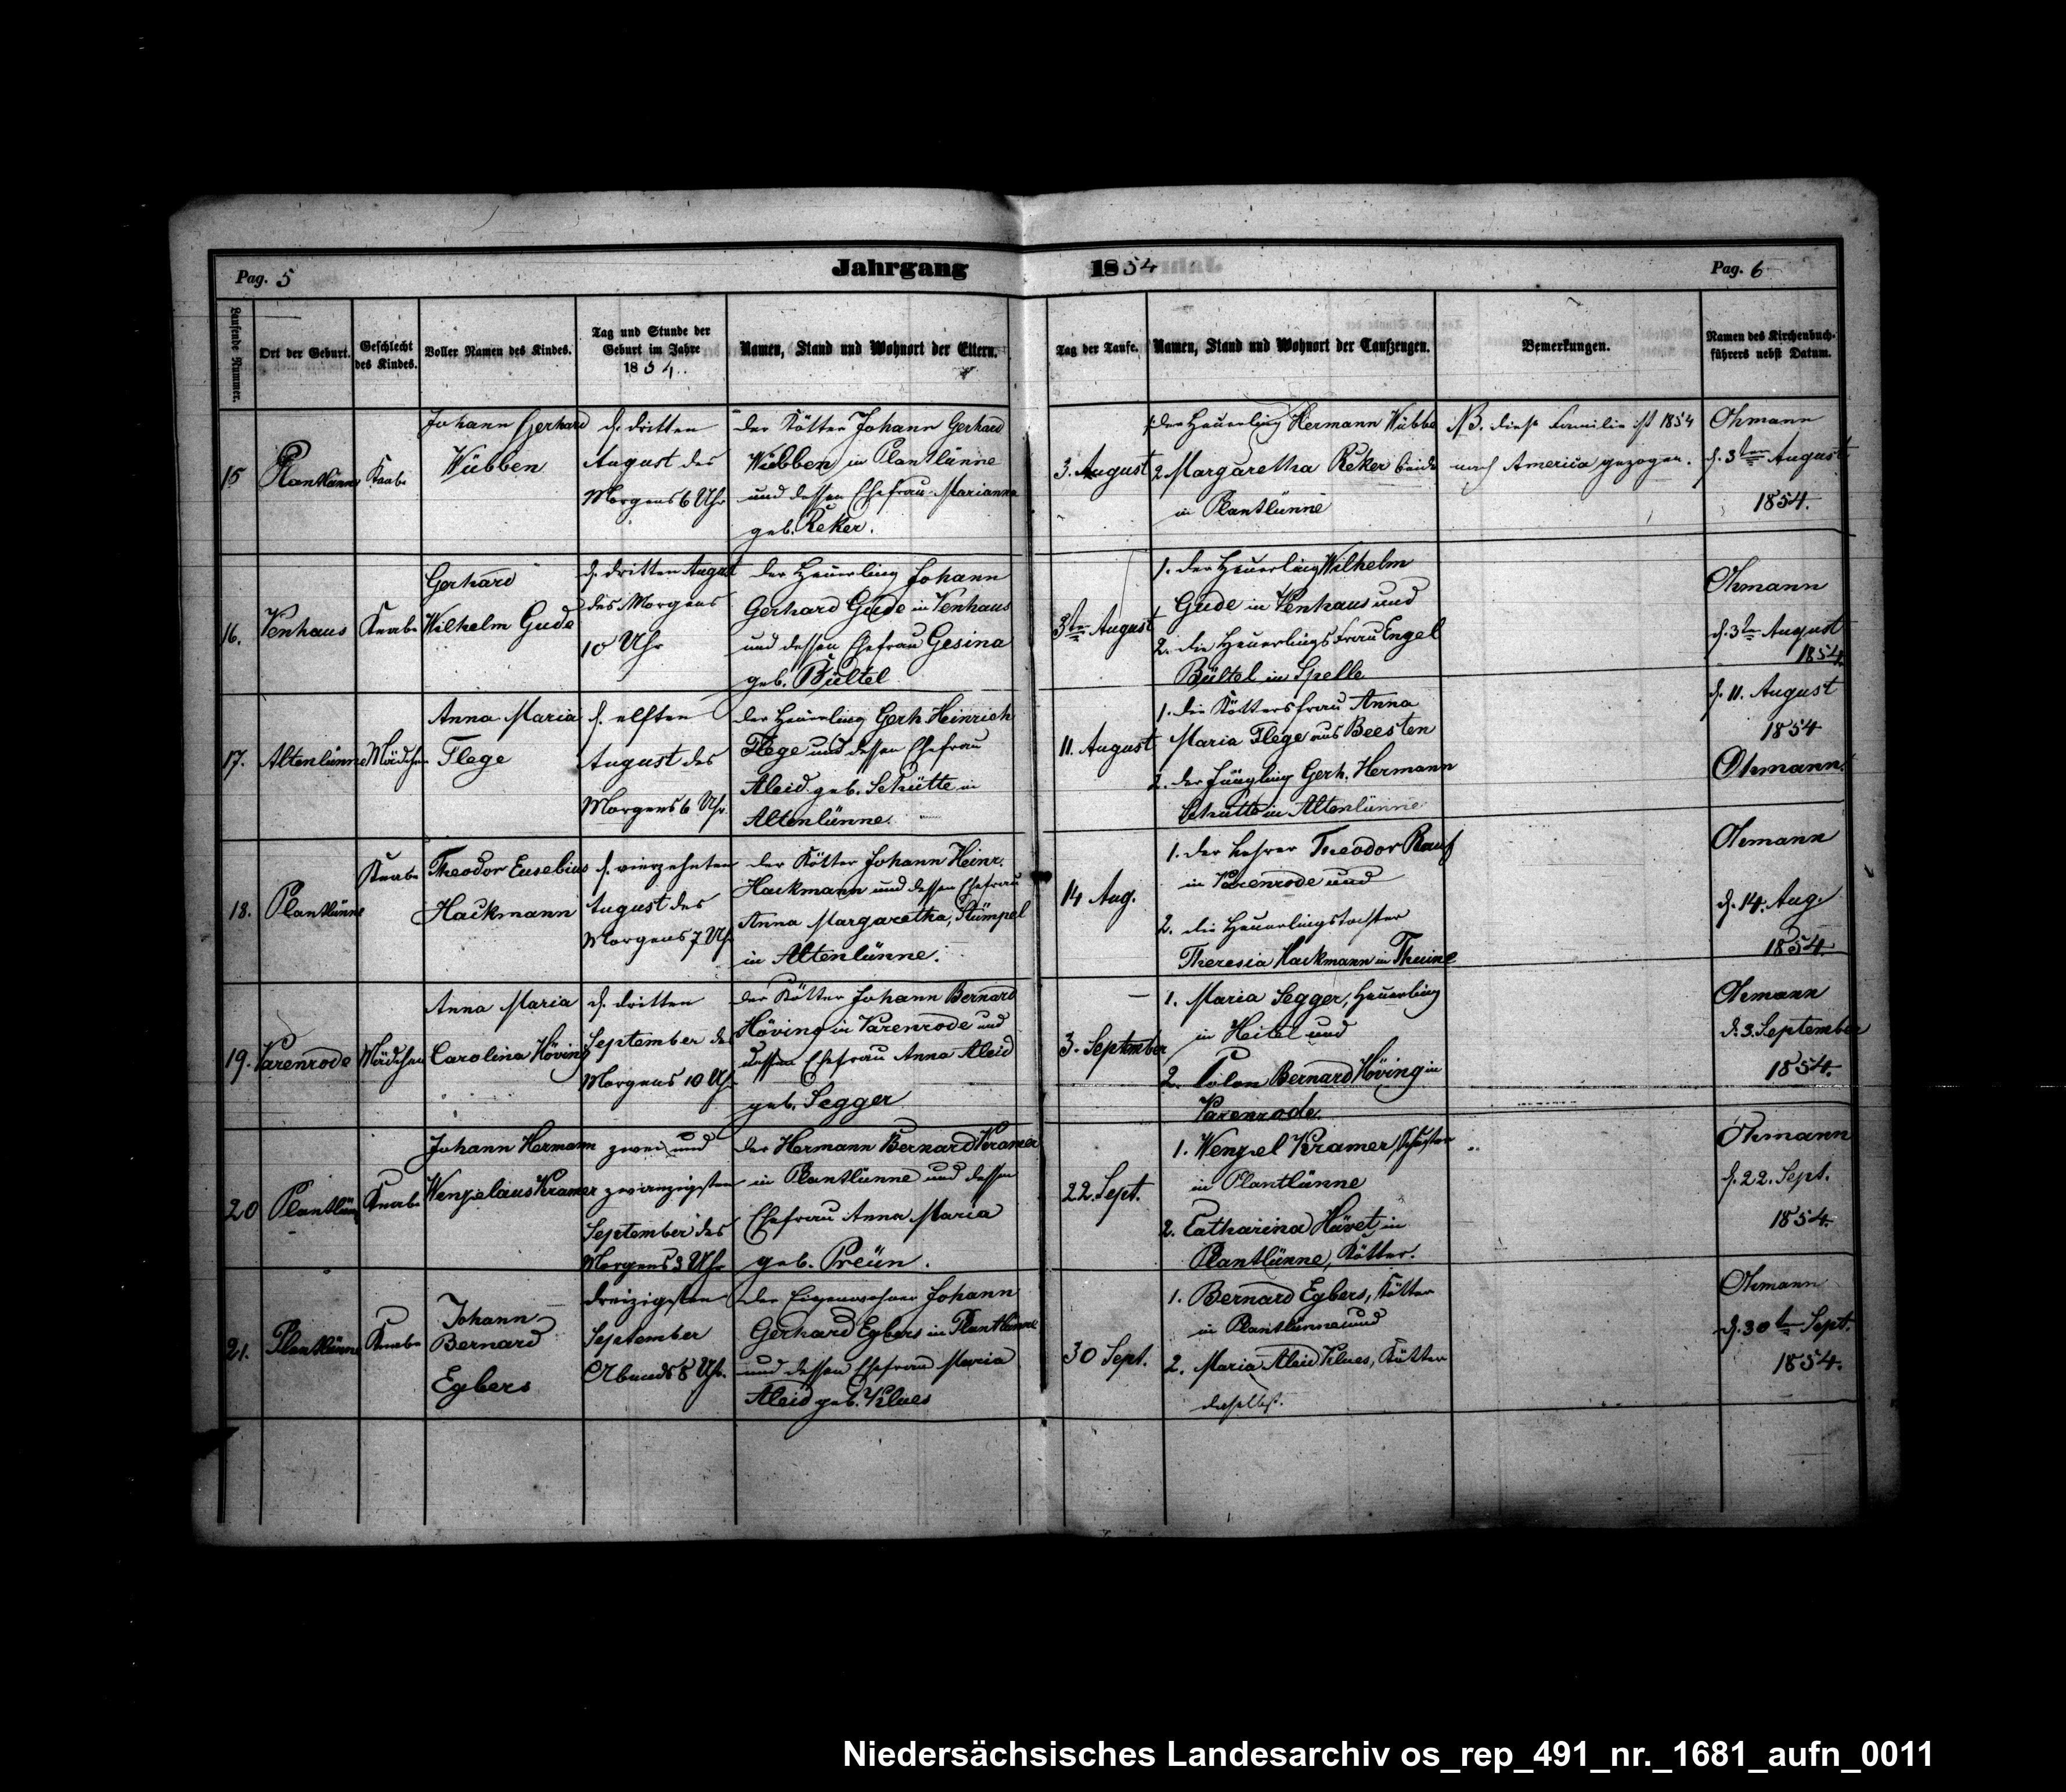 Pag. 5
Jahrgang 1854
Pag. 6
Laufende Nummer.
Ort der Geburt.
Geschlecht
des Kindes.
Voller Namen des Kindes.
Tag und Stunde der
Geburt im Jahre
1854.
Namen, Stand und Wohnort der Eltern.
Tag der Taufe.
Namen, Stand und Wohnort der Taufzeugen.
Bemerkungen.
Namen des Kirchenbuch-
führers nebst Datum.
15
Plantlünne
Knabe
Johann Gerhard
Wübben
d. dritten
August des
Morgens 6 Uhr
der Kötter Johann Gerhard
Wübben in Plantlünne
und dessen Ehefrau Marianna
geb. Reker.
3. August
1. der Heuerling Hermann Wübbe
2. Margaretha Reker beide
in Plantlünne
NB. diese Familie ist 1854
nach America gezogen.
Ohmann
d. 3ten August
1854.
16.
Venhaus
Knabe
Gerhard
Wilhelm Gude
d. dritten August
des Morgens
10 Uhr
der Heuerling Johann
Gerhard Gude in Venhaus
und dessen Ehefrau Gesina
geb. Bültel
3ten August
1. der Heuerling Wilhelm
Gude in Venhaus und
2. die Heuerlingsfrau Engel
Bültel in Spelle
Ohmann
d. 3ten August
1854.
17.
Altenlünne
Mädchen
Anna Maria
Flege
d. elften
August des
Morgens 6 Uhr
der Heuerling Gerh. Heinrich
Flege und dessen Ehefrau
Aleid geb. Schütte in
Altenlünne.
11. August
1. die Köttersfrau Anna
Maria Flege aus Beesten
2. der Jüngling Gerh. Hermann
Schütte in Altenlünne
d. 11. August
1854
Ohmann.
18.
Plantlünne
Knabe
Theodor Eusebius
Hackmann
d. vierzehnten
August des
Morgens 7 Uhr
der Kötter Johann Heinr.
Hackmann und dessen Ehefrau
Anna Margaretha, Stümpel
in Altenlünne.
14 Aug.
1. der Lehrer Theodor
in Varenrode und
2. die Heuerlingstochter
Theresia Hackmann in Thuine
Ohmann
d. 14. Aug.
1854.
19.
Varenrode
Mädchen
Anna Maria
Carolina Höving
d. dritten
September des
Morgens 10 Uhr
der Kötter Johann Bernard
Höving in Varenrode und
dessen Ehefrau Anna Aleid
geb. Segger
3. September
1. Maria Segger, Heuerling
in Heitel und
2. Colon Bernard Höving in
Varenrode.
Ohmann
d. 3. September
1854.
20
Plantlünne
Knabe
Johann Hermann
Wenzelaus Kramer
zwei und
zwanzigsten
September des
Morgens 3 Uhr
der Hermann Bernard Kramer
in Plantlünne und dessen
Ehefrau Anna Maria
geb. Preün.
22. Sept.
1. Wenzel Kramer,
in Plantlünne
2. Catharina Hüvet in
Plantlünne, Kötter.
Ohmann
d. 22. Sept.
1854.
21.
Plantlünne
Knabe
Johann
Bernard
Egbers
dreizigsten
September
Abends 8 Uhr.
der Eigenwohner Johann
Gerhard Egbers in Plantlünne
und dessen Ehefrau Maria
Aleid geb. Klues
30 Sept.
1. Bernard Egbers, Kötter
in Plantlünne und
2. Maria Aleid Klues, Kötter
daselbst.
Ohmann
d. 30ten Sept.
1854.
Niedersächsisches Landesarchiv os_rep_491_nr._1681_aufn_0011